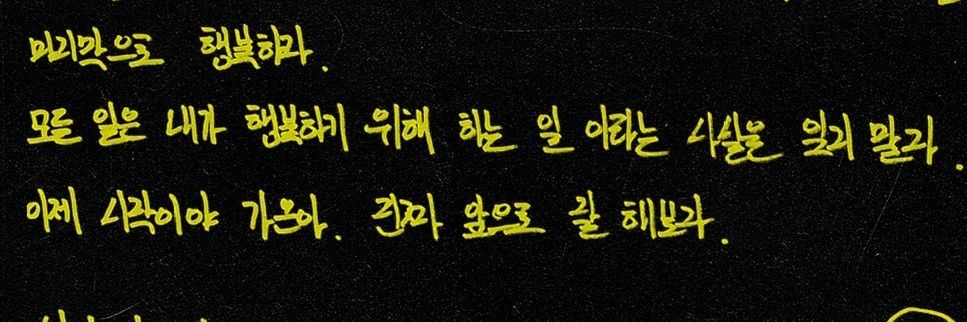 마지막으로 행복하라.
모든 일은 내가 행복하기 위해 하는 일 이라는 사실을 잊지 말라.
이제 시작이야 가온아. 진짜 앞으로 잘 해보자.